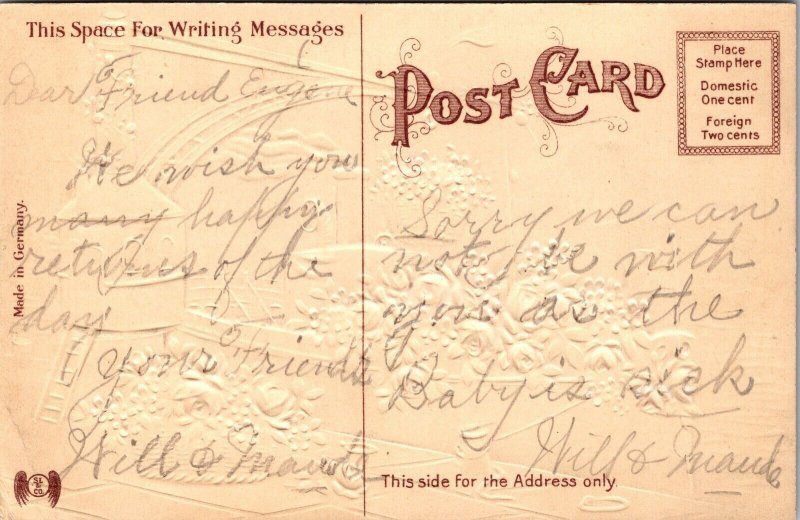 This Space For Writing Messages
Dear Friend Eugene
We wish you
many happy
returns of the
day
Your Friends
Will & Maude
Made in Germany.
POST CARD
Place
Stamp Here
Domestic
One cent
Foreign
Two cents
Sorry we can
not be with
you as the
Baby is sick
Will & Maude
This side for the Address only.